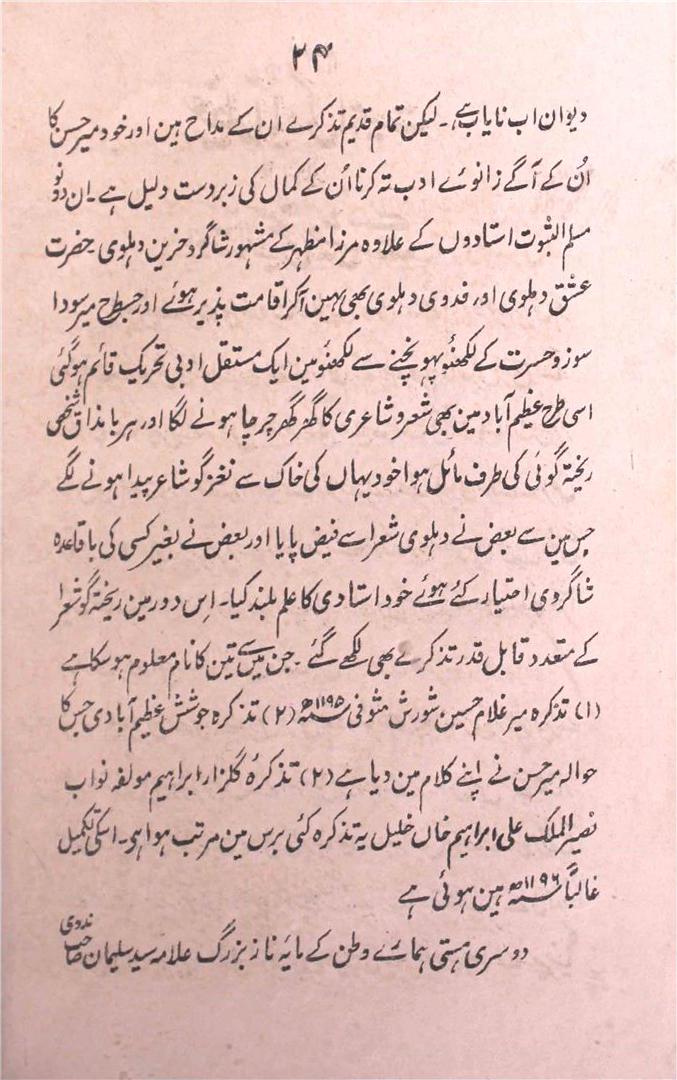 ۲۴
دیوان اب نایاب ہے۔ لیکن تمام قدیم تذکرے ان کے مداح ہین اور خود میر حسن کا
اُن کے آگے زانوئے ادب تہ کرنا اُن کے کمال کی زبردست دلیل ہے۔ ان دونو
مسلم الثبوت استادوں کے علاوہ مرزا مظہر کے مشہور شاگرد حزین دہلوی۔ حضرت
عشق دہلوی اور فدوی دہلوی بھی یہین آکر اقامت پذیر ہوئے اور جسطرح میر سودا
سوز و حسرت کے لکھنؤ پہونچنے سے لکھنؤ مین ایک مستقل ادبی تحریک قائم ہوگئی
اسی طرح عظیم آباد مین بھی شعر و شاعری کا گھر گھر چرچا ہونے لگا اور ہر با مذاق شخص
ریختہ گوئی کی طرف مائل ہوا خود یہاں کی خاک سے نغز گو شاعر پیدا ہونے لگے
جس مین سے بعض نے دہلوی شعرا سے فیض پایا اور بعض نے بغیر کسی کی باقاعدہ
شاگردی اختیار کئے ہوئے خود استادی کا علم بلند کیا۔ اِس دور مین ریختہ گو شعرا
کے متعدد قابل قدر تذکرے بھی لکھے گئے۔ جن میں سے تین کا نام معلوم ہوسکا ہے
(۱) تذکرہ میر غلام حسین شورش متوفی ۱۱۹۵ھ (۲) تذکرہ جوشش عظیم آبادی جس کا
حوالہ میر حسن نے اپنے کلام مین دیا ہے (۲) تذکرۂ گلزار ابراہیم مولفہ نواب
نصیر الملک علی ابراہیم خاں خلیل یہ تذکرہ کئی برس مین مرتب ہوا ہو۔ اسکی تکمیل
غالباً ۱۱۹۶ھ مین ہوئی ہے
دوسری ہستی ہمارے وطن کے مایۂ ناز بزرگ علامہ سید سلیمان صاحب ندوی